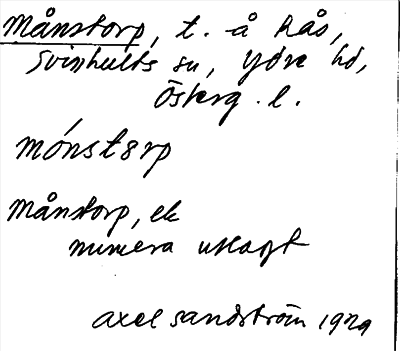 Månstorp, t. å Rås,
Svinhults sn, Ydre hd,
Österg. l.
mónstərp
Månstorp, ek
numera utlagt
Axel Sandström 1929